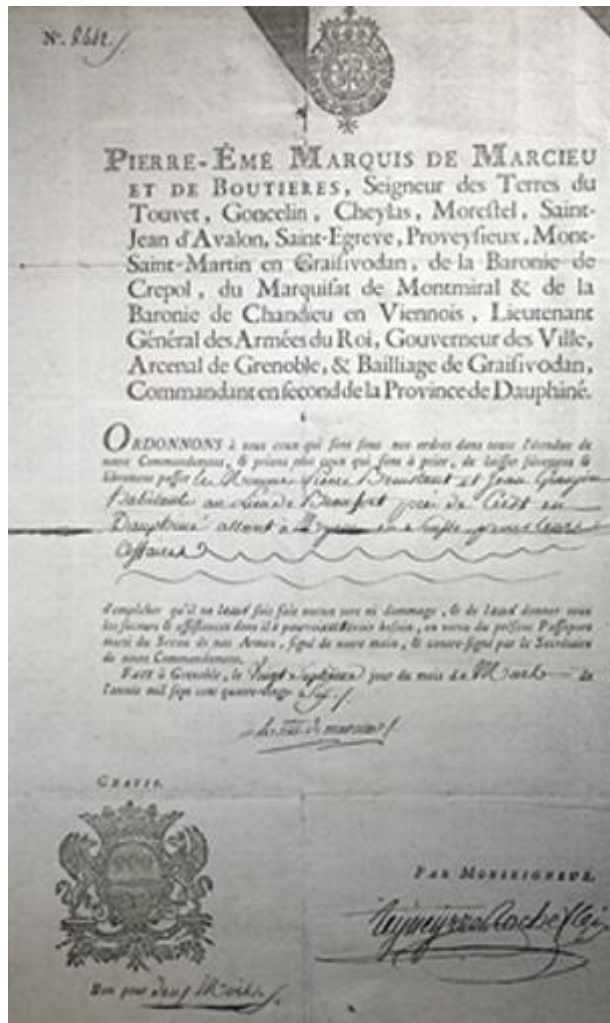 N°.
PIERRE-ÉMÉ MARQUIS DE MARCIEU
ET DE BOUTIERES, Seigneur des Terres du
Touvet, Goncelin, Cheylas, Morestel, Saint-
Jean d'Avalon, Saint-Egreve, Proveysieux, Mont-
Saint-Martin en Graisivodan, de la Baronie de
Crepol, du Marquisat de Montmiral & de la
Baronie de Chandieu en Viennois, Lieutenant
Général des Armées du Roi, Gouverneur des Ville,
Arcenal de Grenoble, & Bailliage de Graisivodan,
Commandant en second de la Province de Dauphiné.
ORDONNONS à tous ceux qui sont sous nos ordres dans toute l'étendue de
notre Commandement, & prions plus ceux qui sont à prier, de laisser sûrement &
librement passer le Pierre et Jean
habitant au lieu de Beaufort près de Crest en
Dauphiné allant à en Suisse pour leurs
affaires
d'empêcher qu'il ne leur soit fait aucun tort ni dommage, & de leur donner tous
les secours & assistances dont il pourroit avoir besoin, en vertu du présent Passeport
muni du Sceau de nos Armes, signé de notre main, & contre-signé par le Secrétaire
de notre Commandement.
FAIT à Grenoble, le vingt jour du mois de Mars de
l'année mil sept cent quatre-vingt Six
de marcieu
GRATIS.
PAR MONSEIGNEUR.
Bon pour deux Mois